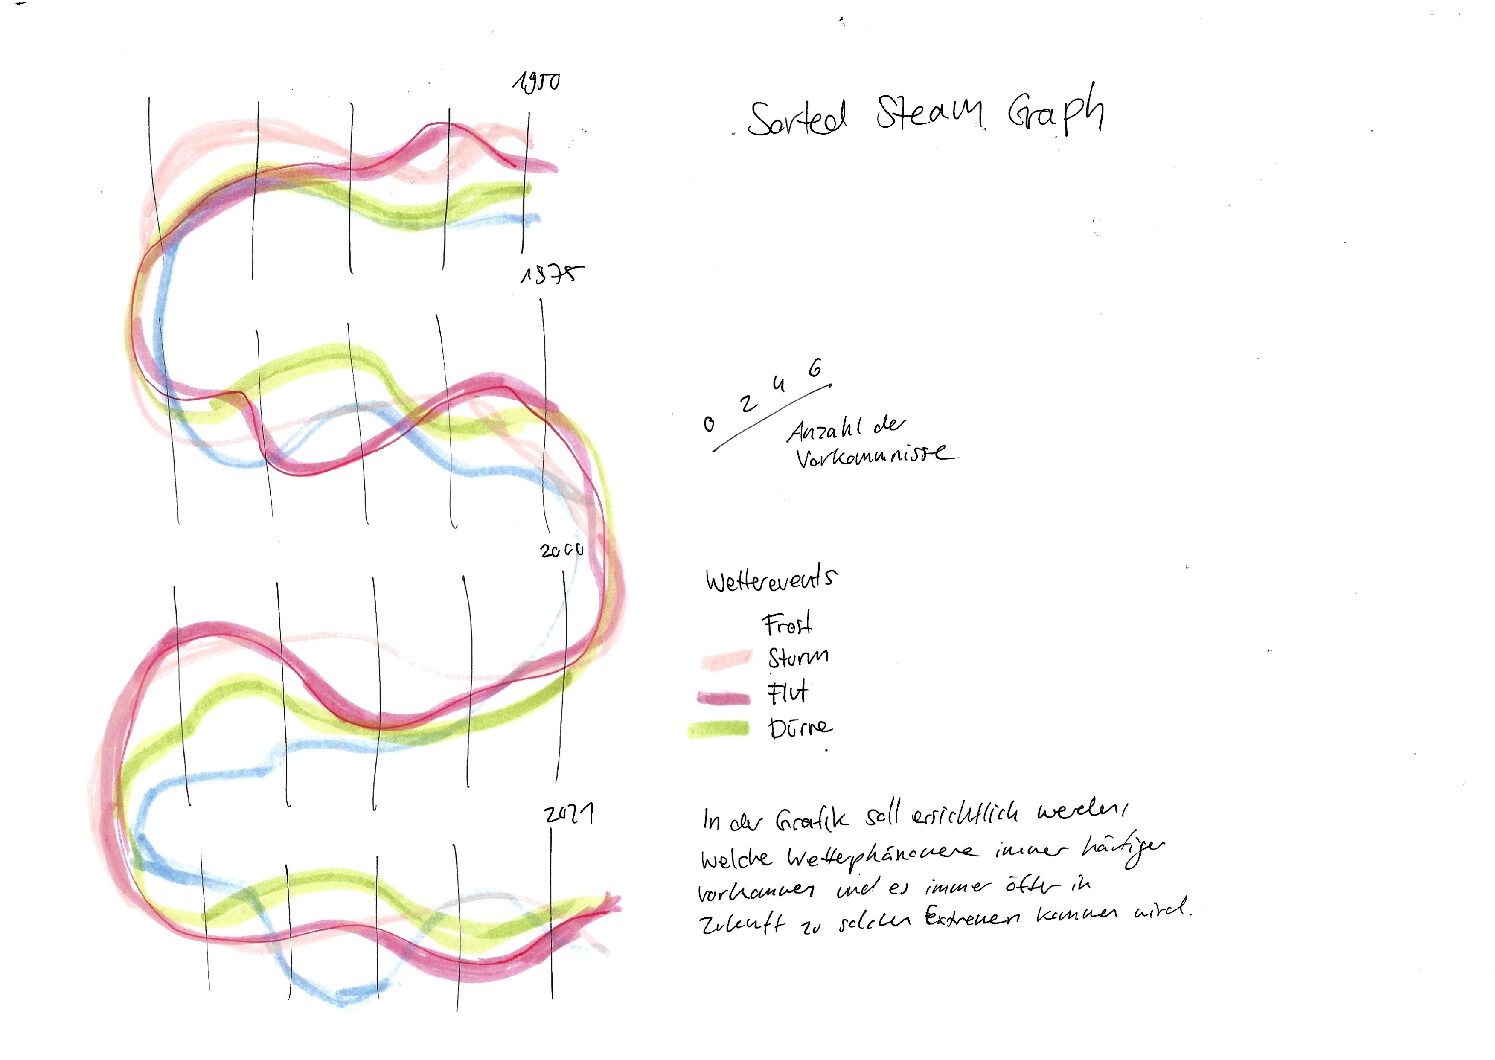 1950
Sorted Steam Graph
1975
0 2 4 6
Anzahl der
Vorkommnisse
2000
Wetterevents
Frost
Sturm
Flut
Dürre
2021
In der Grafik soll ersichtlich werden,
welche Wetterphänomene immer häufiger
vorkommen und es immer öfter in
Zukunft zu solchen Extremen kommen wird.